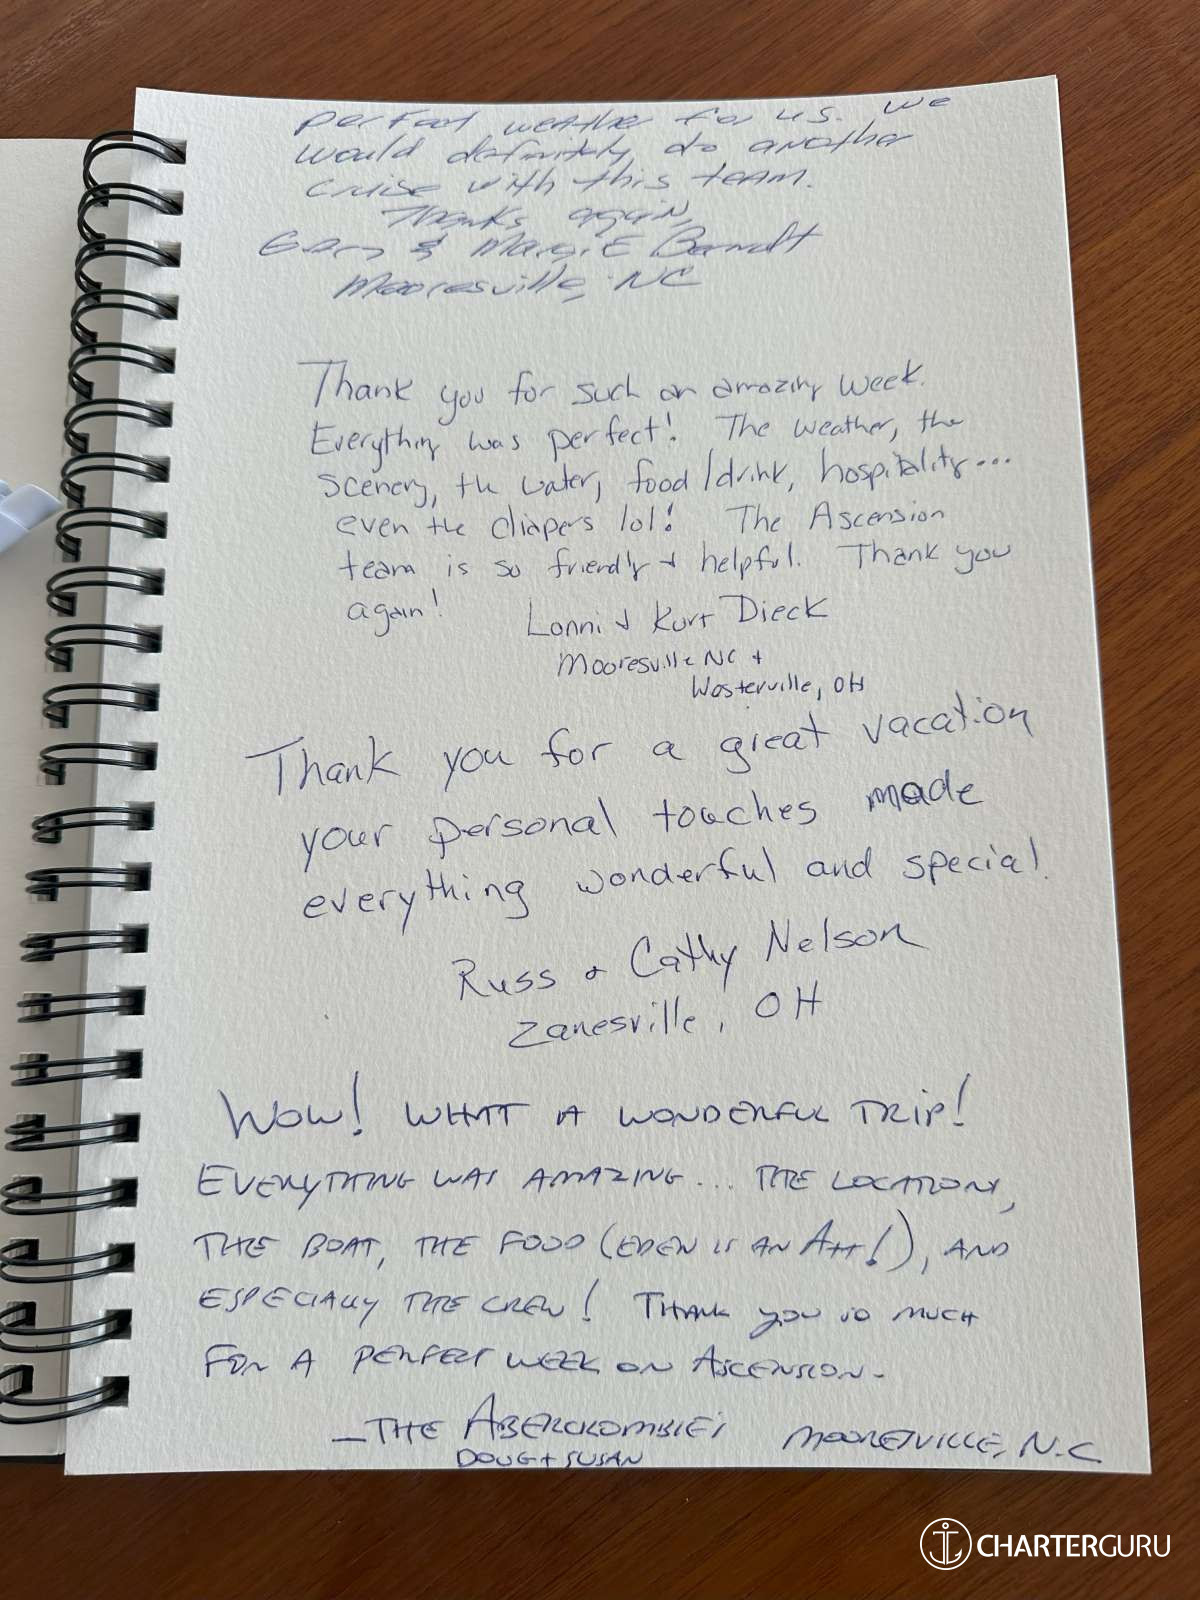 perfect weather for us. We
would definitely do another
cruise with this team.
Thanks again,
Gary & Margie Berndt
Mooresville, NC
Thank you for such an amazing week.
Everything was perfect! The weather, the
scenery, the water, food/drink, hospitality...
even the diapers lol! The Ascension
team is so friendly + helpful. Thank you
again! Lonni + Kurt Dieck
Mooresville NC +
Westerville, OH
Thank you for a great vacation
your personal touches made
everything wonderful and special.
Russ + Cathy Nelson
Zanesville, OH
WOW! WHAT A WONDERFUL TRIP!
EVERYTHING WAS AMAZING... THE LOCATIONS,
THE BOAT, THE FOOD (EDEN IS AN A++!), AND
ESPECIALLY THE CREW! THANK YOU SO MUCH
FOR A PERFECT WEEK ON ASCENSION.
—THE ABERCROMBIE'S MOORESVILLE, N.C
DOUG + SUSAN
CHARTERGURU